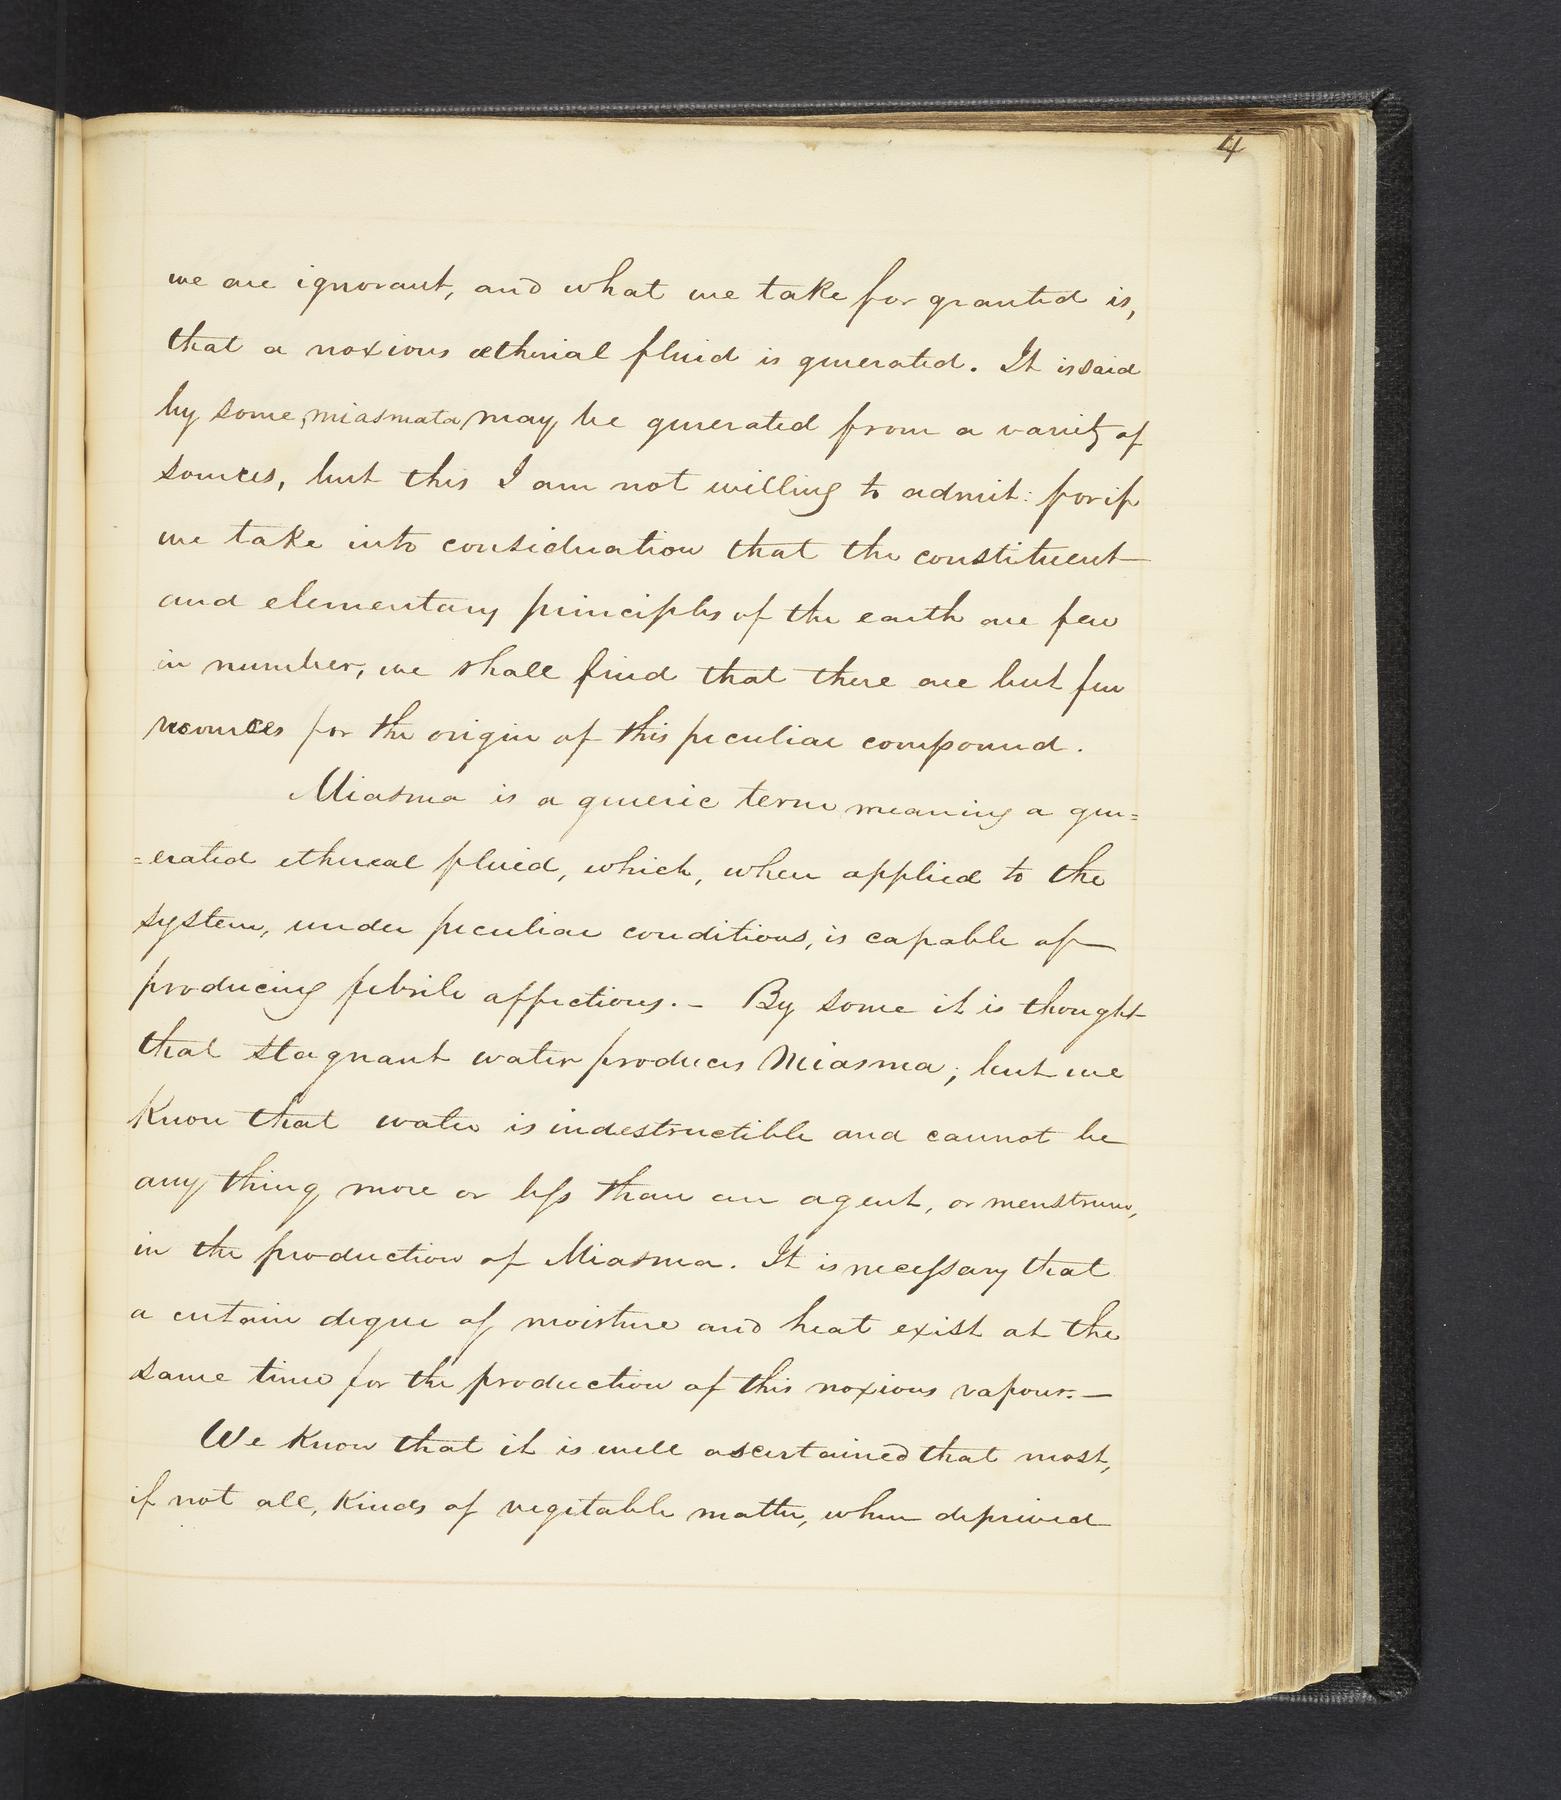 4
we are ignorant, and what we take for granted is,
that a noxious ætherial fluid is generated. It is said
by some, miasmata may be generated from a variety of
sources, but this I am not willing to admit: for if
we take into consideration that the constituent
and elementary principles of the earth are few
in number, we shall find that there are but few
resources for the origin of this peculiar compound.
Miasma is a generic term meaning a gen=
=erated ethereal fluid, which, when applied to the
system, under peculiar conditions, is capable of
producing febrile affections. — By some it is thought
that stagnant water produces Miasma; but we
Know that water is indestructible and cannot be
any thing more or less than an agent, or menstrum,
in the production of Miasma. It is necessary that
a certain degree of moisture and heat exist at the
same time for the production of this noxious vapour. —
We Know that it is well ascertained that most,
if not all, Kinds of vegitable matter, when deprived